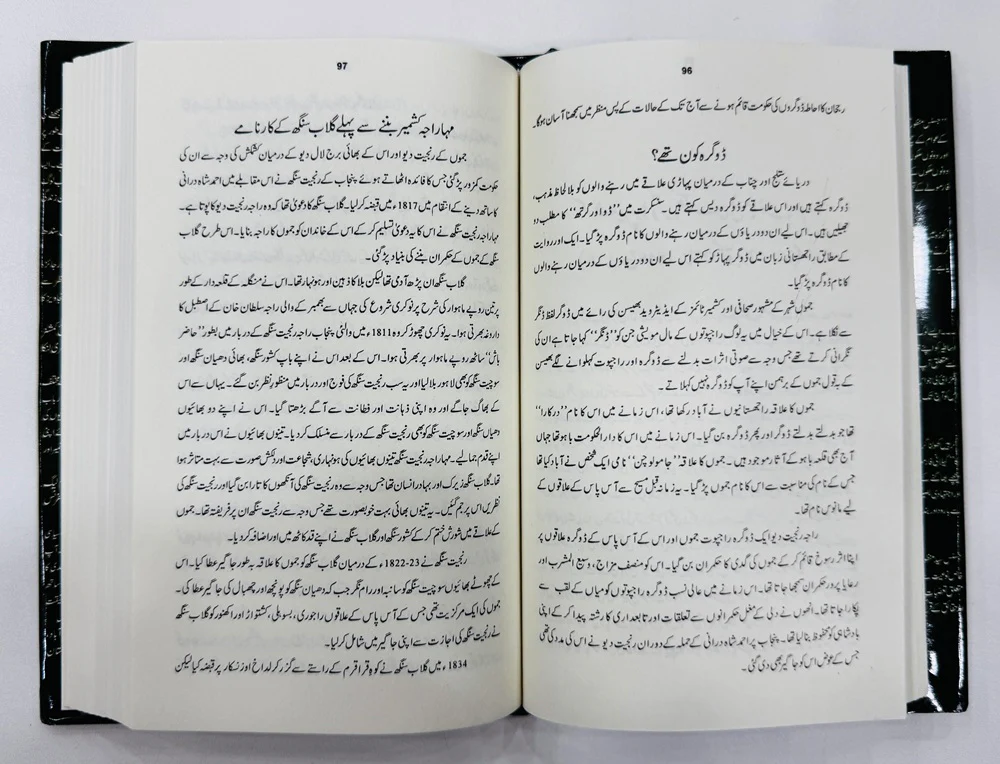 96
رجحان کا احاطہ ڈوگروں کی حکومت قائم ہونے سے آج تک کے حالات کے پس منظر میں سمجھنا آسان ہوگا۔
ڈوگرہ کون تھے؟
دریائے ستلج اور چناب کے درمیان پہاڑی علاقے میں رہنے والوں کو بلا لحاظ مذہب،
ڈوگرہ کہتے ہیں اور اس علاقے کو ڈوگرہ دیس کہتے ہیں۔ سنسکرت میں ”ڈو اور گرتھ“ کا مطلب دو
جھیلیں ہیں۔ اس لیے ان دو دریاؤں کے درمیان رہنے والوں کا نام ڈوگرہ پڑ گیا۔ ایک اور روایت
کے مطابق راجھستانی زبان میں ڈوگر پہاڑ کو کہتے ہیں اس لیے ان دو دریاؤں کے درمیان رہنے والوں
کا نام ڈوگرہ پڑ گیا۔
جموں شہر کے مشہور صحافی اور کشمیر ٹائمز کے ایڈیٹر وید بھسین کی رائے میں ڈوگر لفظ ڈنگر
سے نکلا ہے۔ اس کے خیال میں یہ لوگ راجپوتوں کے مال مویشی جن کو ”ڈنگر“ کہا جاتا ہے ان کی
نگرانی کرتے تھے جس وجہ سے صوتی اثرات بدلنے سے ڈوگرہ اور راجپوت کہلوانے لگے بھسین
کے بقول جموں کے برہمن اپنے آپ کو ڈوگرہ نہیں کہلاتے۔
جموں کا علاقہ راجھستانیوں نے آباد رکھا تھا، اس زمانے میں اس کا نام ”درکارا“
تھا جو بدلتے بدلتے ڈوگر اور پھر ڈوگرہ بن گیا۔ اس زمانے میں اس کا دارالحکومت باہو تھا جہاں
آج بھی قلعہ باہو کے آثار موجود ہیں۔ جموں کا علاقہ ”جامولوچن“ نامی ایک شخص نے آباد کیا تھا
جس کے نام کی مناسبت سے اس کا نام جموں پڑ گیا۔ یہ زمانہ قبل مسیح سے آس پاس کے علاقوں کے
لیے مانوس نام تھا۔
راجہ رنجیت دیو ایک ڈوگرہ راجپوت جموں اور اس کے آس پاس کے ڈوگرہ علاقوں پر
اپنا اثر رسوخ قائم کر کے جموں کی گدی کا حکمران بن گیا۔ اس کو منصف مزاج، وسیع المشرب اور
رعایا پرور حکمران سمجھا جاتا تھا۔ اس زمانے میں عالی نسب ڈوگرہ راجپوتوں کو میاں کے لقب سے
پکارا جاتا تھا۔ انھوں نے دلی کے مغل حکمرانوں سے تعلقات اور تابعداری کا رشتہ پیدا کر کے اپنی
بادشاہی کو محفوظ بنا لیا تھا۔ پنجاب پر احمد شاہ درانی کے حملہ کے دوران رنجیت دیو نے اس کی مدد کی تھی
جس کے عوض اس کو جاگیر بھی دی گئی۔
97
مہاراجہ کشمیر بننے سے پہلے گلاب سنگھ کے کارنامے
جموں کے رنجیت دیو اور اس کے بھائی برج لال دیو کے درمیان کشمکش کی وجہ سے ان کی
حکومت کمزور پڑ گئی جس کا فائدہ اٹھاتے ہوئے پنجاب کے رنجیت سنگھ نے اس مقابلے میں احمد شاہ درانی
کا ساتھ دینے کے انتقام میں 1817ء میں قبضہ کر لیا۔ گلاب سنگھ کا دعویٰ تھا کہ وہ راجہ رنجیت دیو کا پوتا ہے۔
مہاراجہ رنجیت سنگھ نے اس کا یہ دعویٰ تسلیم کر کے اس کے خاندان کو جموں کا راجہ بنایا۔ اس طرح گلاب
سنگھ کے جموں کے حکمران بننے کی بنیاد پڑ گئی۔
گلاب سنگھ ان پڑھ آدمی تھا لیکن بلا کا ذہین اور ہونہار تھا۔ اس نے منگلہ کے قلعہ دار کے طور
پر تین روپے ماہوار کی شرح پر نوکری شروع کی جہاں سے بھمبر کے والی راجہ سلطان خان کے اصطبل کا
داروغہ بھرتی ہوا۔ یہ نوکری چھوڑ کر وہ 1811ء میں والئی پنجاب راجہ رنجیت سنگھ کے دربار میں بطور ”حاضر
باش“ ساٹھ روپے ماہوار پر بھرتی ہوا۔ اس کے بعد اس نے اپنے باپ کشور سنگھ، بھائی دھیان سنگھ اور
سوچیت سنگھ کو بھی لاہور بلا لیا اور یہ سب رنجیت سنگھ کی فوج اور دربار میں منظور نظر بن گئے۔ یہاں سے اس
کے بھاگ جاگے اور وہ اپنی ذہانت اور فطانت سے آگے بڑھتا گیا۔ اس نے اپنے دو بھائیوں
دھیان سنگھ اور سوچیت سنگھ کو بھی رنجیت سنگھ کے دربار سے منسلک کر دیا۔ تینوں بھائیوں نے اس دربار میں
اپنے قدم جما لیے۔ مہاراجہ رنجیت سنگھ تینوں بھائیوں کی ہونہاری، شجاعت اور دلکش صورت سے بہت متاثر ہوا
تھا۔ گلاب سنگھ زیرک اور بہادر انسان تھا جس وجہ سے وہ رنجیت سنگھ کی آنکھوں کا تارا بن گیا اور رنجیت سنگھ کی
نظریں اس پر جم گئیں۔ یہ تینوں بھائی بہت خوبصورت تھے جس وجہ سے رنجیت سنگھ ان پر فریفتہ تھا۔ جموں
کے علاقے میں شورش ختم کر کے کشور سنگھ اور گلاب سنگھ نے اپنے قد کاٹھ میں اور اضافہ کر دیا۔
رنجیت سنگھ نے 23-1822ء کے درمیان گلاب سنگھ کو جموں کا علاقہ بہ طور جاگیر عطا کیا۔ اس
کے چھوٹے بھائیوں سوچیت سنگھ کو سانبہ اور رام نگر جب کہ دھیان سنگھ کو پونچھ اور چھبال کی جاگیر عطا کی۔
جموں کی ایک مرکزیت تھی جس کے آس پاس کے علاقوں راجوری، بسوہلی، کشتواڑ اور اکھنور کو گلاب سنگھ
نے رنجیت سنگھ کی اجازت سے اپنی جاگیر میں شامل کر لیا۔
1834ء میں گلاب سنگھ نے کوہ قراقرم کے راستے سے گزر کر لداخ اور زنسکار پر قبضہ کیا لیکن